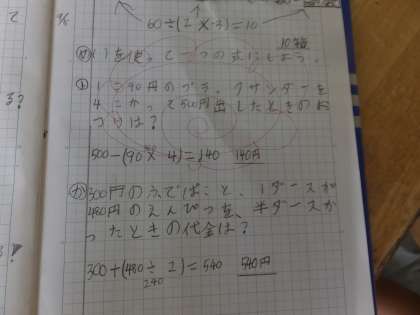 60÷(2×3)=10
( )を使って一つの式にしよう。
1こ90円のブラックサンダーを
4こかって500円出したときのお
つりは?
500-(90×4)=140 140円
300円のふでばこと、1ダースが
480円のえんぴつを、半ダースか
ったときの代金は?
300+(480÷2)=540 540円
240